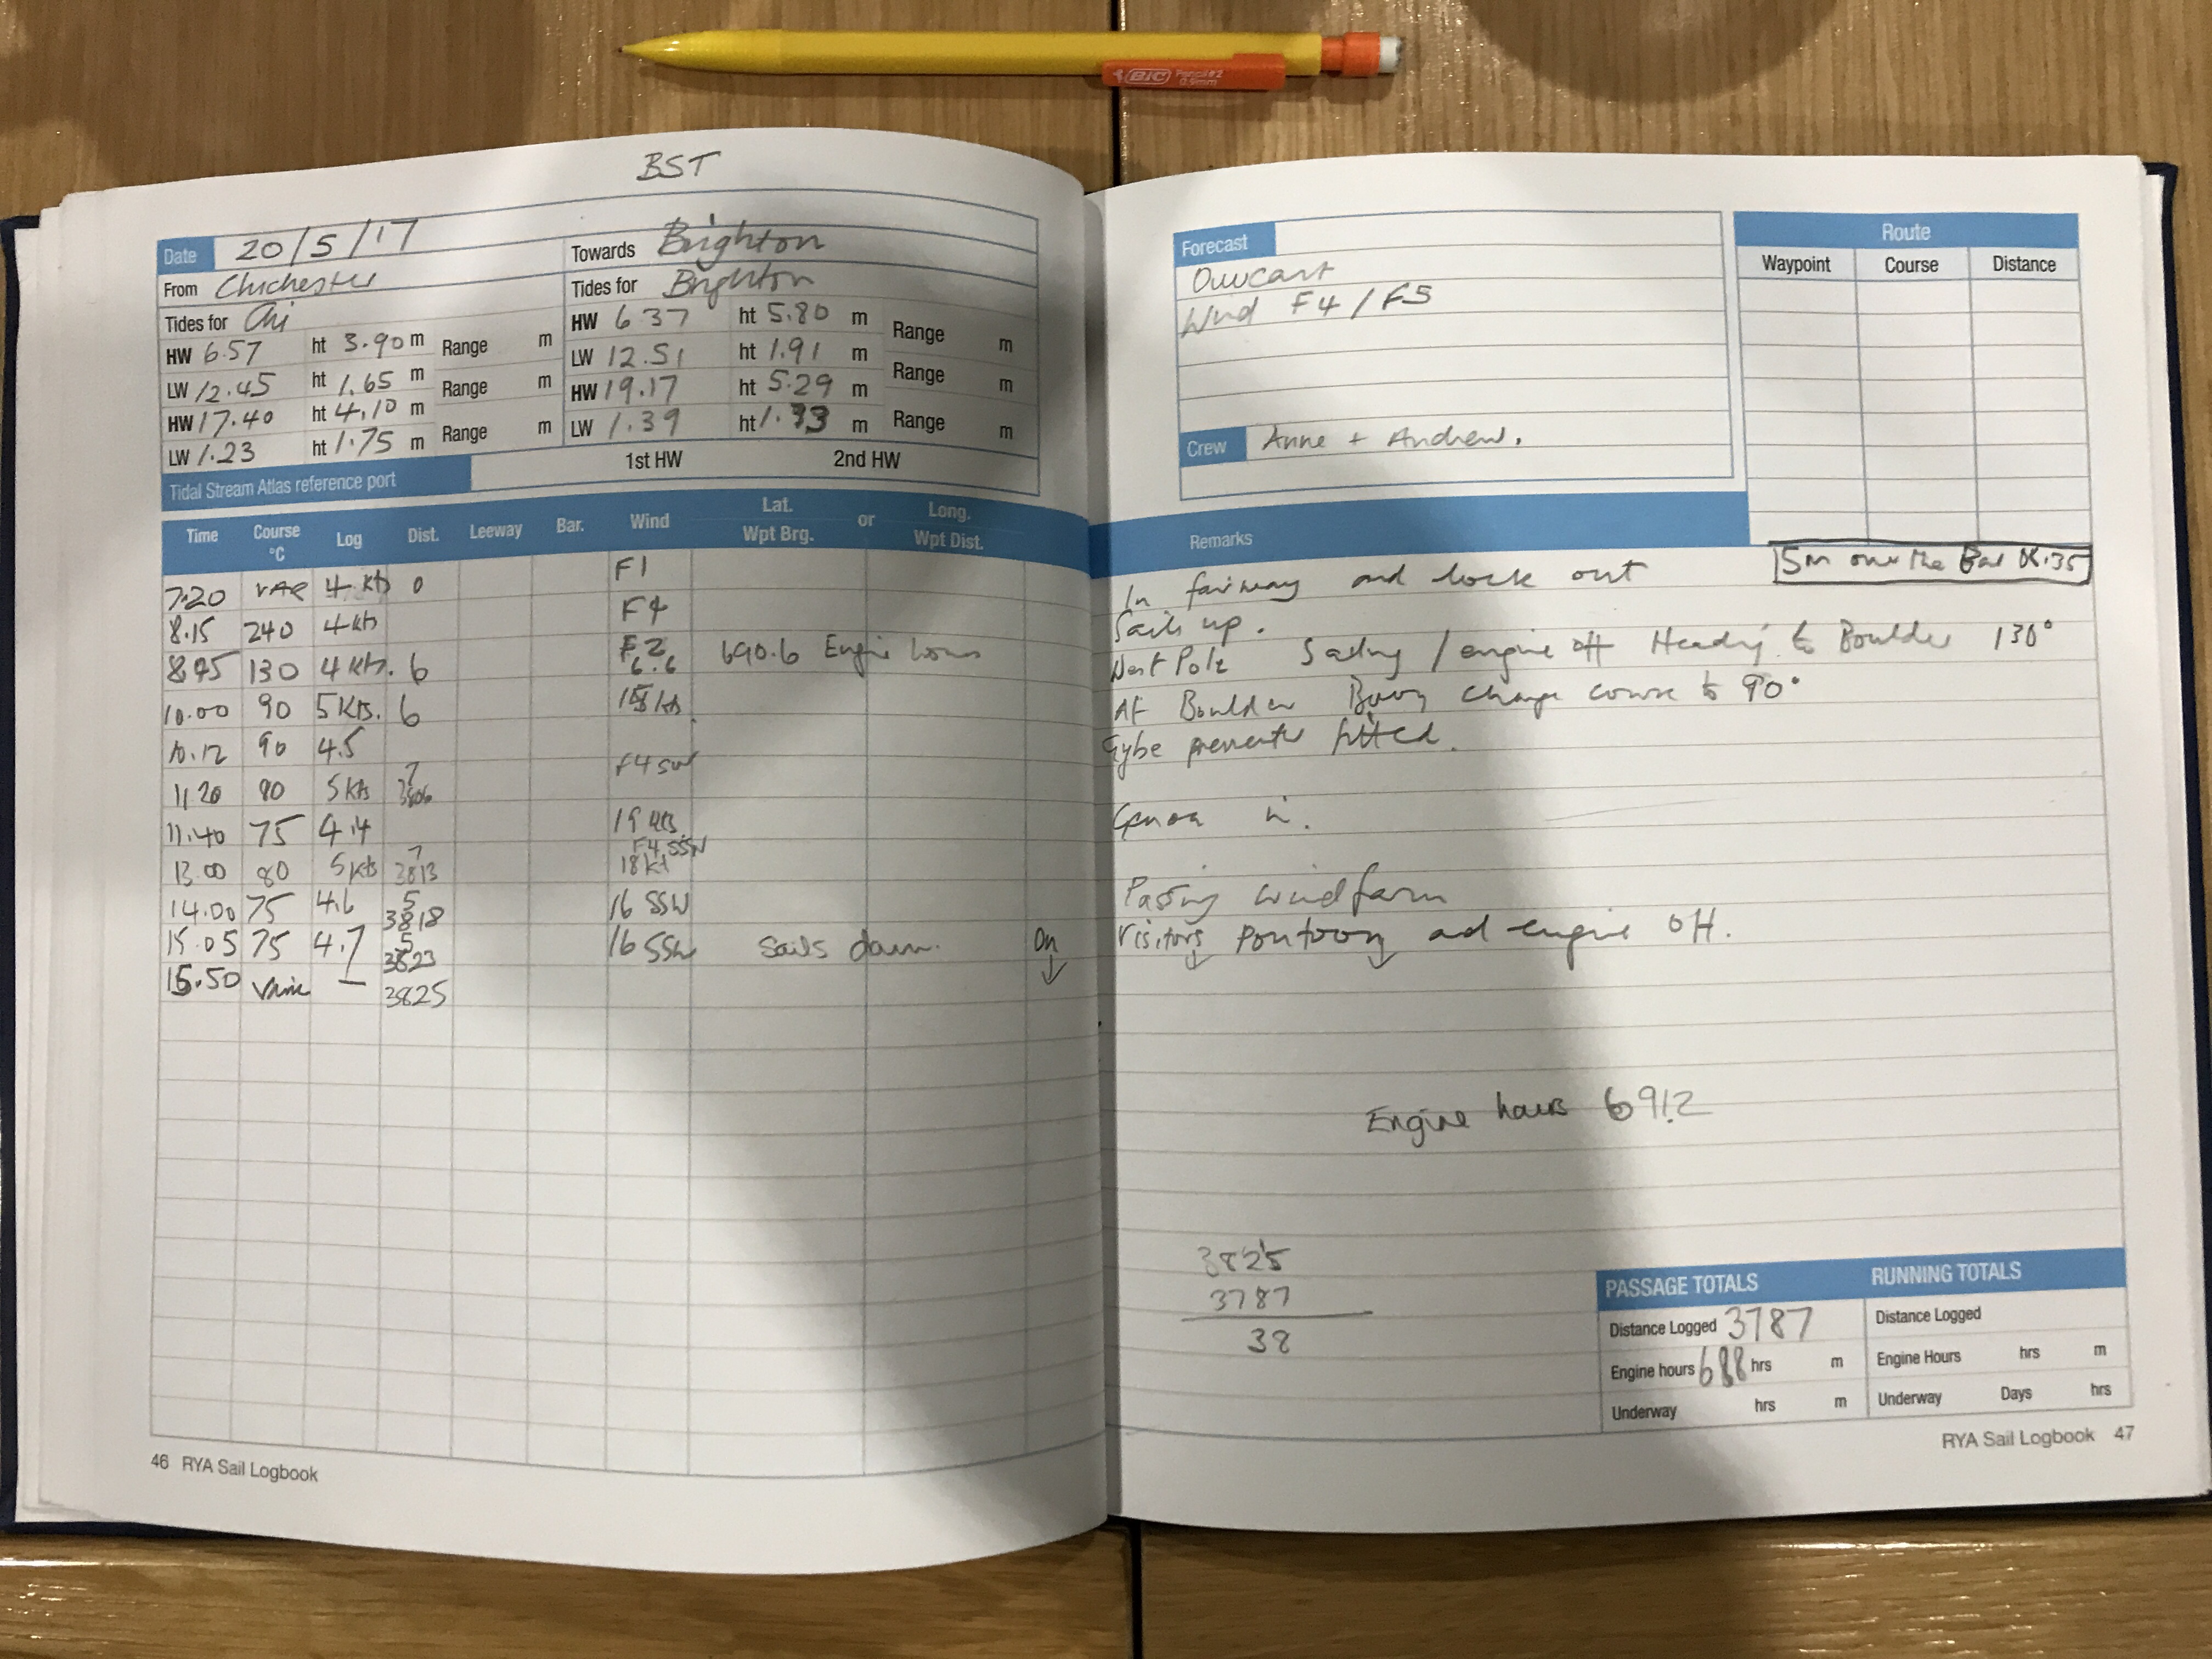 BIC Pencil #2
0.9mm
BST
Date 20/5/17
Towards Brighton
From Chichester
Tides for Brighton
Tides for Chi
HW 6.37 ht 5.80 m Range m
HW 6.57 ht 3.90 m Range m
LW 12.51 ht 1.91 m Range m
LW 12.45 ht 1.65 m Range m
HW 19.17 ht 5.29 m
HW 17.40 ht 4.10 m
LW 1.39 ht 1.33 m Range m
LW 1.23 ht 1.75 m Range m
1st HW 2nd HW
Tidal Stream Atlas reference port
Time Course °C Log Dist. Leeway Bar. Wind Lat. Wpt Brg. or Long. Wpt Dist.
7.20 VAR 4 kts 0 F1
8.15 240 4 kts F4
8.45 130 4 kts. 6 F2 6.6 690.6 Engine hours
10.00 90 5 kts. 6 15 kts
10.12 90 4.5
11 20 90 5 kts 7 3806 F4 SW
11.40 75 4.4 19 kts
13.00 80 5 kts 7 3813 F4 SSW 18 kt
14.00 75 4.6 5 3818 16 SSW
15.05 75 4.7 5 3823 16 SSW Sails down. On
15.50 — 3825
46 RYA Sail Logbook
Forecast
Wind F4 / F5
Crew Anne + Andrew.
Route
Waypoint Course Distance
Remarks
5m over the Bar
In fairway and lock out
Sails up.
West Pole Sailing / engine off Heading to Boulder 130°
At Boulder Buoy change course to 90°
Gybe preventer fitted.
Genoa in.
Passing windfarm
Visitors pontoon and engine off.
Engine hours 691.2
3825
3787
38
PASSAGE TOTALS RUNNING TOTALS
Distance Logged 3787 Distance Logged
Engine hours 688 hrs m Engine Hours hrs m
Underway hrs m Underway Days hrs
RYA Sail Logbook 47